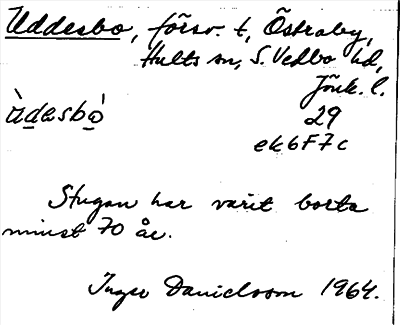 Uddesbo, försv. t, Östraby,
Hults sn, S. Vedbo hd,
Jönk. l.
ùdesbó 29
ek6F7c
Stugan har varit borta
minst 70 år.
Inger Danielsson 1964.